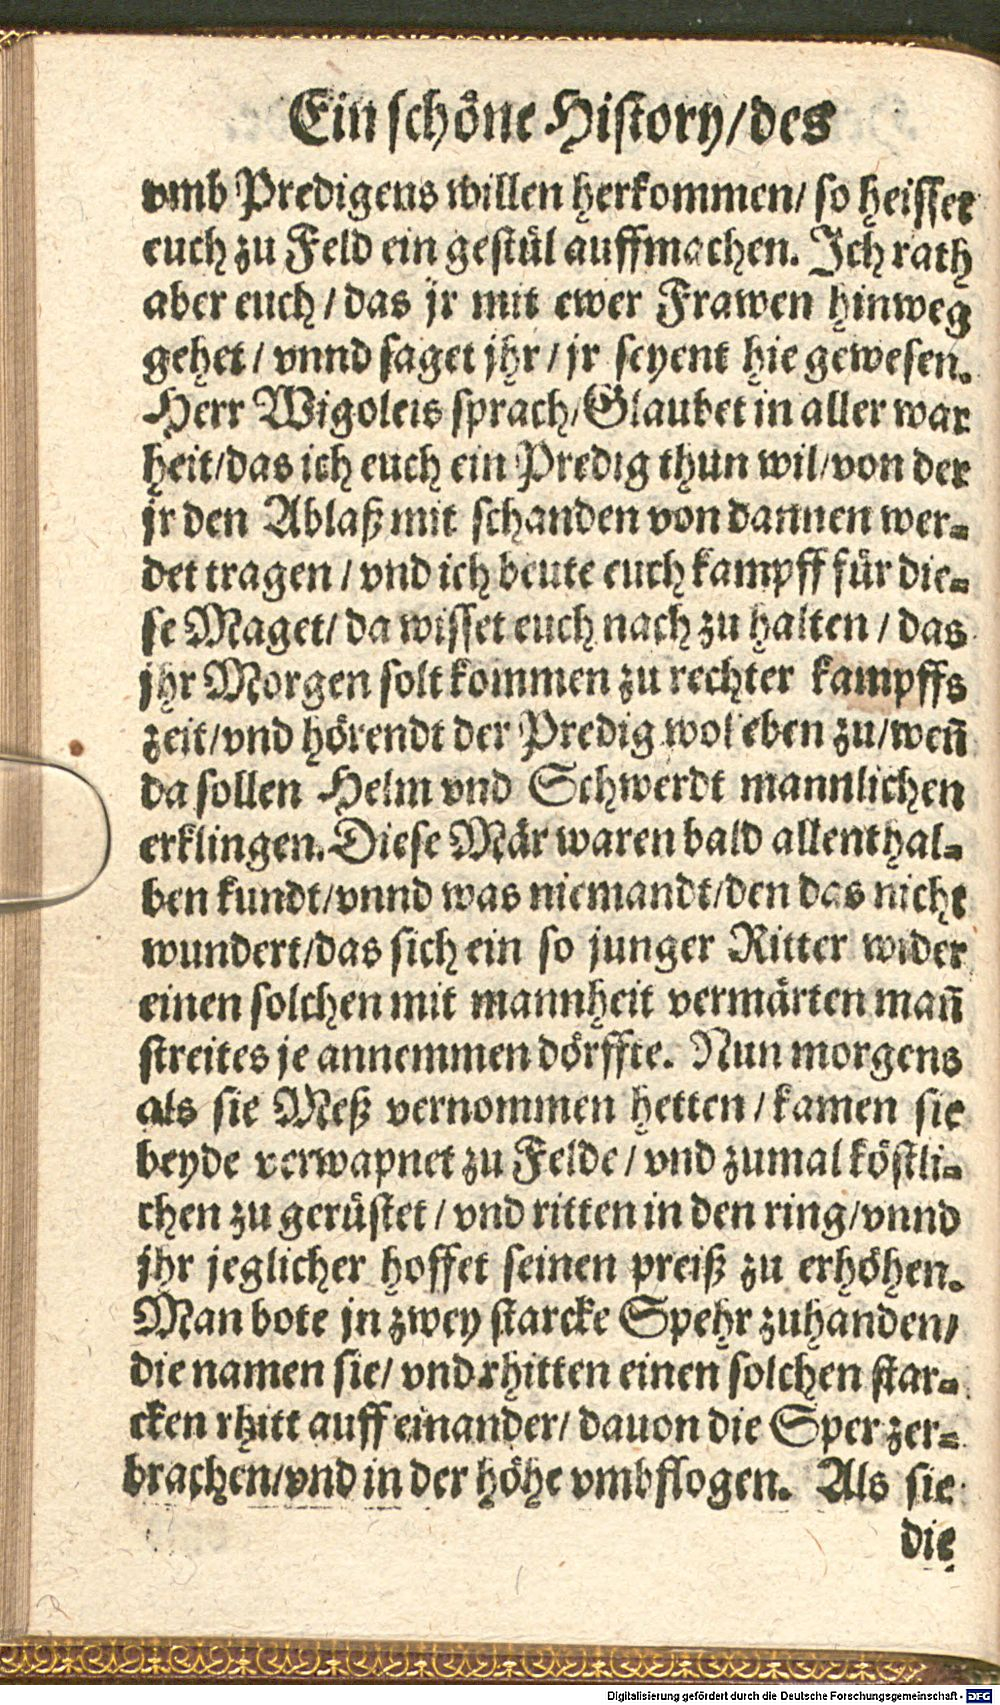 Ein schöne History/des
vmb Predigens willen herkommen/ so heisset
euch zu Feld ein gestül auffmachen. Ich rath
aber euch / das jr mit ewer Frawen hinweg
gehet / vnnd saget jhr / jr seyent hie gewesen.
Herr Wigoleis sprach/Glaubet in aller war
heit/das ich euch ein Predig thun wil/von der
jr den Ablaß mit schanden von dannen wer-
det tragen / vnd ich beute euch kampff für die-
se Maget/ da wisset euch nach zu halten / das
jhr Morgen solt kommen zu rechter kampffs
zeit/vnd hörendt der Predig wol eben zu/weñ
da sollen Helm vnd Schwerdt mannlichen
erklingen. Diese Mär waren bald allenthal-
ben kundt/vnnd was niemandt/den das nicht
wundert/das sich ein so junger Ritter wider
einen solchen mit mannheit vermärten mañ
streites je annemmen dörffte. Nun morgens
als sie Meß vernommen hetten / kamen sie
beyde verwapnet zu Felde / vnd zumal köstli-
chen zu gerüstet / vnd ritten in den ring/vnnd
jhr jeglicher hoffet seinen preiß zu erhöhen.
Man bote jn zwey starcke Spehr zuhanden/
die namen sie/ vnd rhitten einen solchen star-
cken rhitt auff einander/ dauon die Sper zer-
brachen/vnd in der höhe vmbflogen. Als sie
die
Digitalisierung gefördert durch die Deutsche Forschungsgemeinschaft - DFG